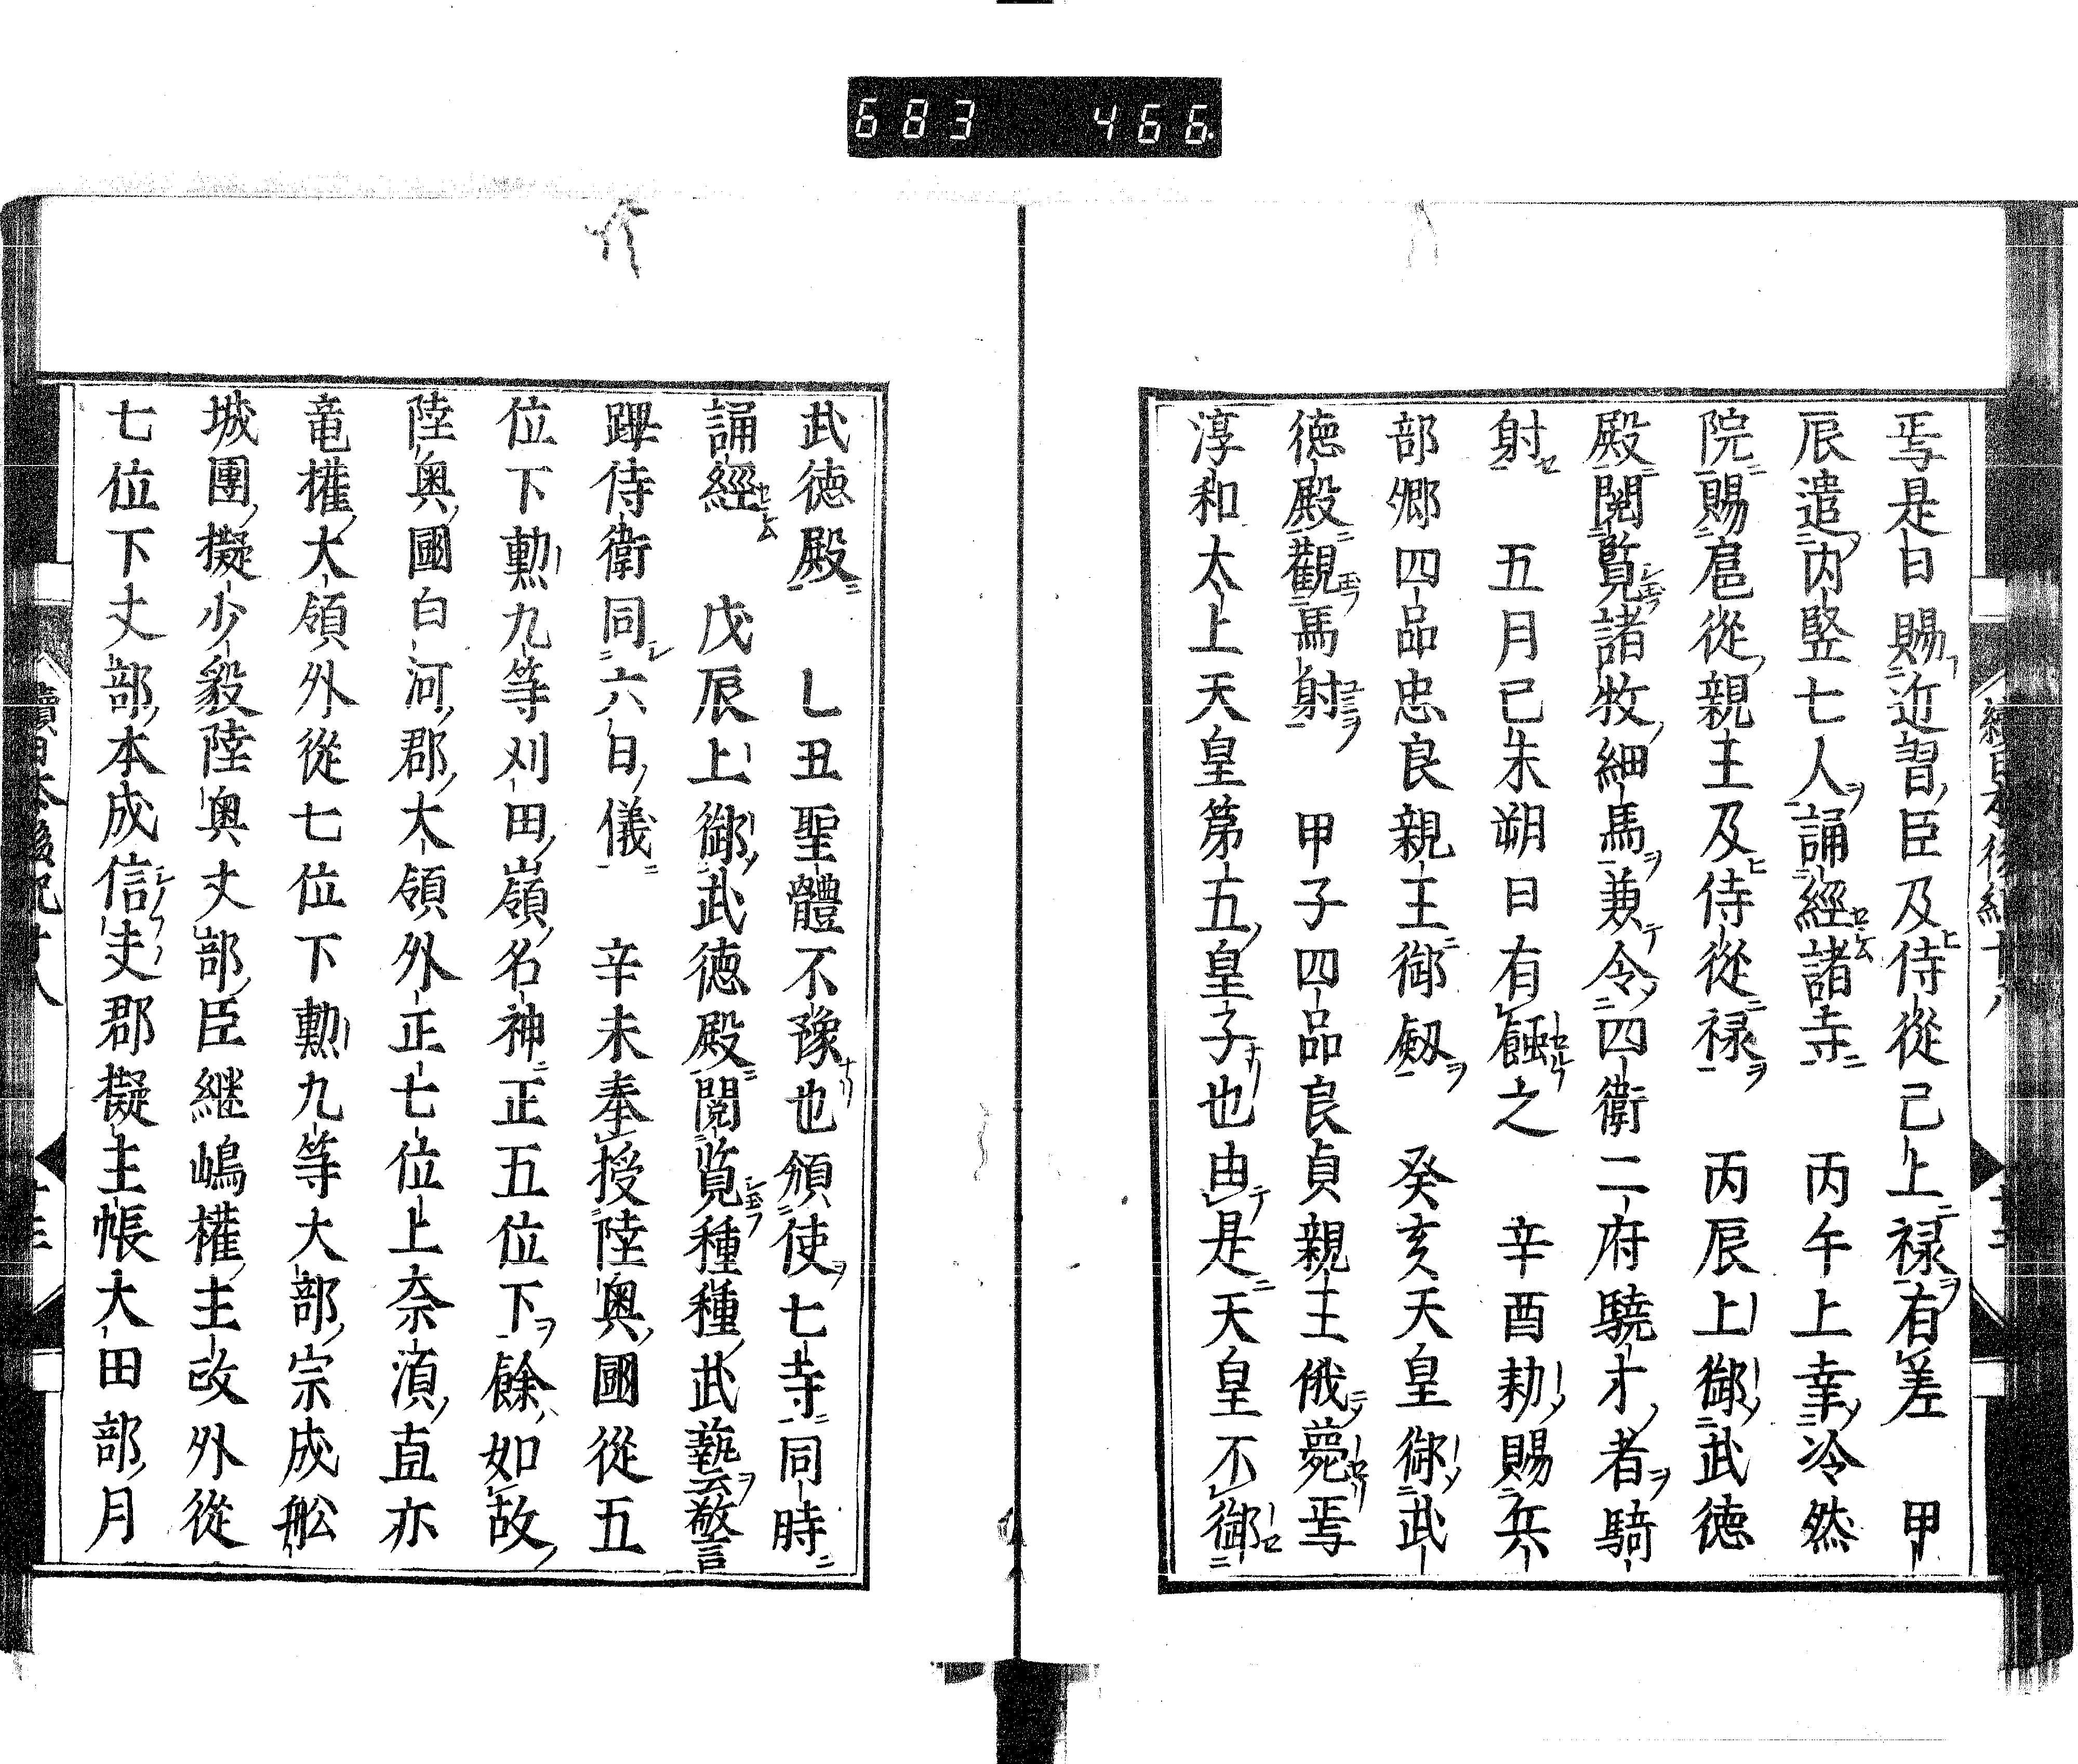 683 466
焉是日賜近習臣及侍從已上禄有差 甲
辰遣内竪七人誦經諸寺 丙午上幸冷然
院賜扈從親王及侍從禄 丙辰上御武徳
殿閲覧諸牧細馬兼令四衛二府驍才者騎
射 五月己朱朔日有蝕之 辛酉勅賜兵
部郷四品忠良親王御劔 癸亥天皇御武
徳殿觀馬射 甲子四品良貞親王俄薨焉
淳和太上天皇第五皇子也由是天皇不御
武徳殿 乚丑聖體不豫也頒使七寺同時
誦經 戊辰上御武徳殿閲覧種種武藝警
蹕侍衛同六日儀 辛未奉授陸奥國從五
位下勲九等刈田嶺名神正五位下餘如故
陸奥國白河郡大領外正七位上奈湏直亦
竜權大領外從七位下勲九等大部宗成舩
城團擬少毅陸奥丈部臣継嶋權主政外從
七位下丈部本成信夫郡擬主帳大田部月